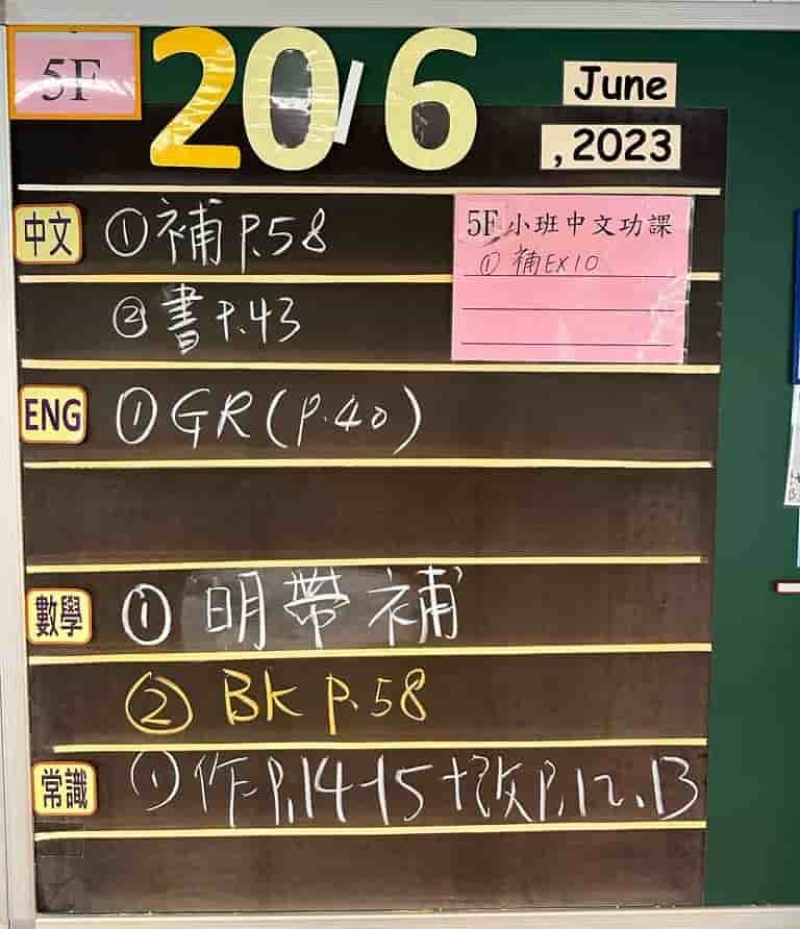 5F 20/6 June
, 2023
中文 ①補 P.58
5F 小班中文功課
① 補EX10
②書 P.43
ENG ①GR(P.40)
數學 ① 明帶補
② BK P.58
常識 ①作P.14-15+改P.12、13